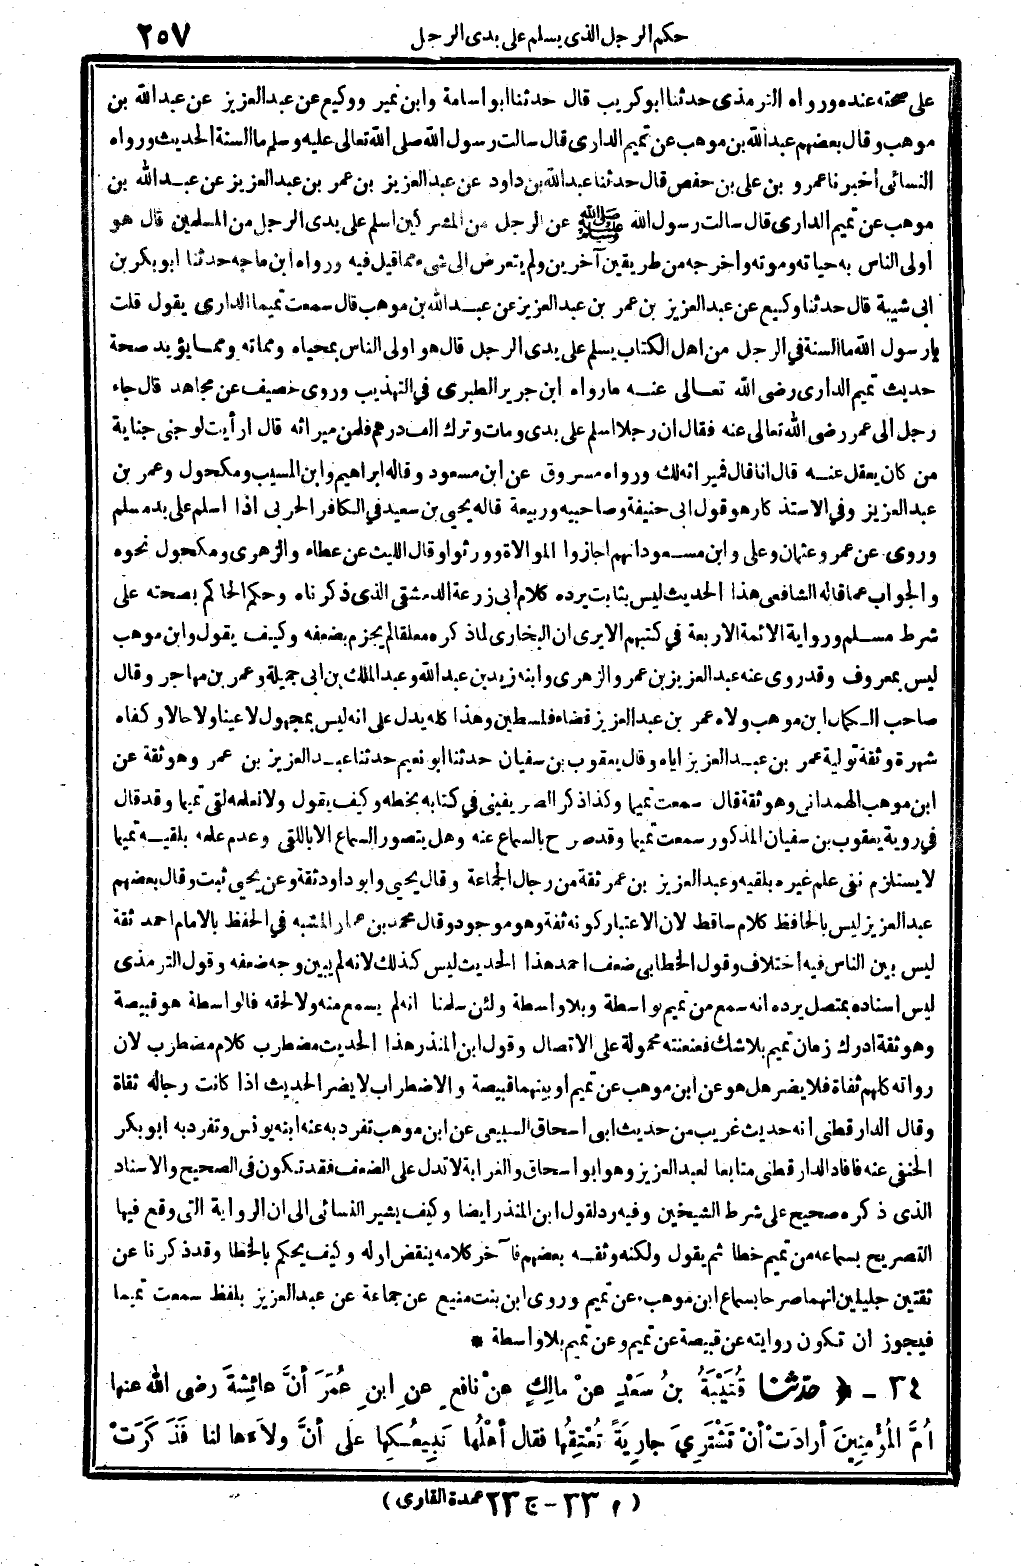 حكم الرجل الذى يسلم على يدى الرجل ٢٥٧
على صحته عنده ورواه الترمذى حدثنا ابوكريب قال حدثنا ابواسامة وابن نمير ووكيع عن عبدالعزيز عن عبدالله بن
موهب وقال بعضهم عبدالله بن موهب عن تميم الدارى قال سالت رسول الله صلى الله تعالى عليه وسلم ما السنة الحديث ورواه
النسائى أخبرنا عمرو بن على بن حفص قال حدثنا عبدالله بن داود عن عبدالعزيز بن عمر بن عبدالعزيز عن عبدالله بن
موهب عن تميم الدارى قال سالت رسول الله ﷺ عن الرجل من المشركين اسلم على يدى الرجل من المسلمين قال هو
أولى الناس به حياته وموته وأخرجه من طريقين آخرين ولم يتعرض الى شىء مما قيل فيه ورواه ابن ماجه حدثنا ابوبكر بن
ابى شيبة قال حدثنا وكيع عن عبدالعزيز بن عمر بن عبدالعزيز عن عبدالله بن موهب قال سمعت تميما الدارى يقول قلت
يارسول الله ما السنة في الرجل من اهل الكتاب يسلم على يدى الرجل قال هو اولى الناس بمحياه ومماته ومما يؤيد صحة
حديث تميم الدارى رضى الله تعالى عنه مارواه ابن جرير الطبرى في التهذيب وروى خصيف عن مجاهد قال جاء
رجل الى عمر رضى الله تعالى عنه فقال ان رجلا اسلم على يدى ومات وترك الف درهم فلمن ميراثه قال ارأيت لو جنى جناية
من كان يعقل عنه قال انا قال فميراثه لك ورواه مسروق عن ابن مسعود وقاله ابراهيم وابن المسيب ومكحول وعمر بن
عبدالعزيز وفي الاستذكار هو قول ابى حنيفة وصاحبيه وربيعة قاله يحيى بن سعيد في الكافر الحربى اذا اسلم على يد مسلم
وروى عن عمر وعثمان وعلى وابن مسعود انهم اجازوا الموالاة وورثوا وقال الليث عن عطاء والزهرى ومكحول نحوه
والجواب عما قاله الشافعى هذا الحديث ليس بثابت يرده كلام أبى زرعة الدمشقى الذى ذكرناه وحكم الحاكم بصحته على
شرط مسلم ورواية الائمة الاربعة في كتبهم الايرى ان البخارى لما ذكره معلقا لم يجزم بضعفه وكيف يقول وابن موهب
ليس بمعروف وقد روى عنه عبدالعزيز بن عمر والزهرى وابنه زيد بن عبدالله وعبدالملك بن ابى جميلة وعمر بن مهاجر وقال
صاحب الكمال ابن موهب ولاه عمر بن عبدالعزيز قضاء فلسطين وهذا كله يدل على انه ليس بمجهول لاعينا ولا حالا وكفاه
شهرة وثقة تولية عمر بن عبدالعزيز اياه وقال يعقوب بن سفيان حدثنا ابونعيم حدثنا عبدالعزيز بن عمر وهو ثقة عن
ابن موهب الهمدانى وهو ثقة قال سمعت تميما وكذا ذكر الصريفينى في كتابه بخطه وكيف يقول ولا نعلمه لقى تميما وقد قال
في روية يعقوب بن سفيان المذكور سمعت تميما وقد صرح بالسماع عنه وهل يتصور السماع الا باللقى وعدم علمه بلقيه تميما
لا يستلزم نفى علم غيره بلقيه وعبدالعزيز بن عمر ثقة من رجال الجماعة وقال يحيى وابو داود ثقة وعن يحيى ثبت وقال بعضهم
عبدالعزيز ليس بالحافظ كلام ساقط لان الاعتبار كونه ثقة وهو موجود وقال محمد بن عمار المشبه في الحفظ بالامام احمد ثقة
ليس بين الناس فيه اختلاف وقول الخطابى ضعف احمد هذا الحديث ليس كذلك لانه لم يبين وجه ضعفه وقول الترمذى
ليس اسناده بمتصل يرده انه سمع من تميم بواسطة وبلا واسطة ولئن سلمنا انه لم يسمع منه ولا لحقه فالواسطة هو قبيصة
وهو ثقة أدرك زمان تميم بلاشك فعنعنته محمولة على الاتصال وقول ابن المنذر هذا الحديث مضطرب كلام مضطرب لان
رواته كلهم ثقاة فلا يضر هل هو عن ابن موهب عن تميم أو بينهما قبيصة والاضطراب لا يضر الحديث اذا كانت رجاله ثقاة
وقال الدارقطنى انه حديث غريب من حديث ابى اسحاق السبيعى عن ابن موهب تفرد به عنه ابنه يونس وتفرد به ابوبكر
الحنفى عنه فافاد الدارقطنى متابعا لعبدالعزيز وهو ابواسحاق والغرابة لا تدل على الضعف فقد تكون فى الصحيح والاسناد
الذى ذكره صحيح على شرط الشيخين وفيه رد لقول ابن المنذر ايضا وكيف يشير النسائى الى ان الرواية التى وقع فيها
التصريح بسماعه من تميم خطا ثم يقول ولكنه وثقه بعضهم فآخر كلامه ينقض اوله وكيف يحكم بالخطا وقد ذكرنا عن
ثقتين جليلين انهما صرحا بسماع ابن موهب عن تميم وروى ابن بنت منيع عن جماعة عن عبدالعزيز بلفظ سمعت تميما
فيجوز ان تكون روايته عن قبيصة عن تميم وعن تميم بلا واسطة *
٣٤ ـ ﴿ حَدَّثَنَا قُتَيْبَةُ بنُ سَعْدٍ عنْ مالِكٍ عنْ نافِعٍ عنِ ابنِ عُمَرَ أنَّ عائِشَةَ رضى الله عنها
أُمَّ المُؤْمِنِينَ أرادَتْ أنْ تَشْتَرِيَ جارِيَةً تُعْتِقُها فقال أهْلُها نَبِيعُكِها على أنَّ ولاءَها لنا فَذَكَرَتْ
( م ٣٣ - ج ٢٣ عمدة القارى )